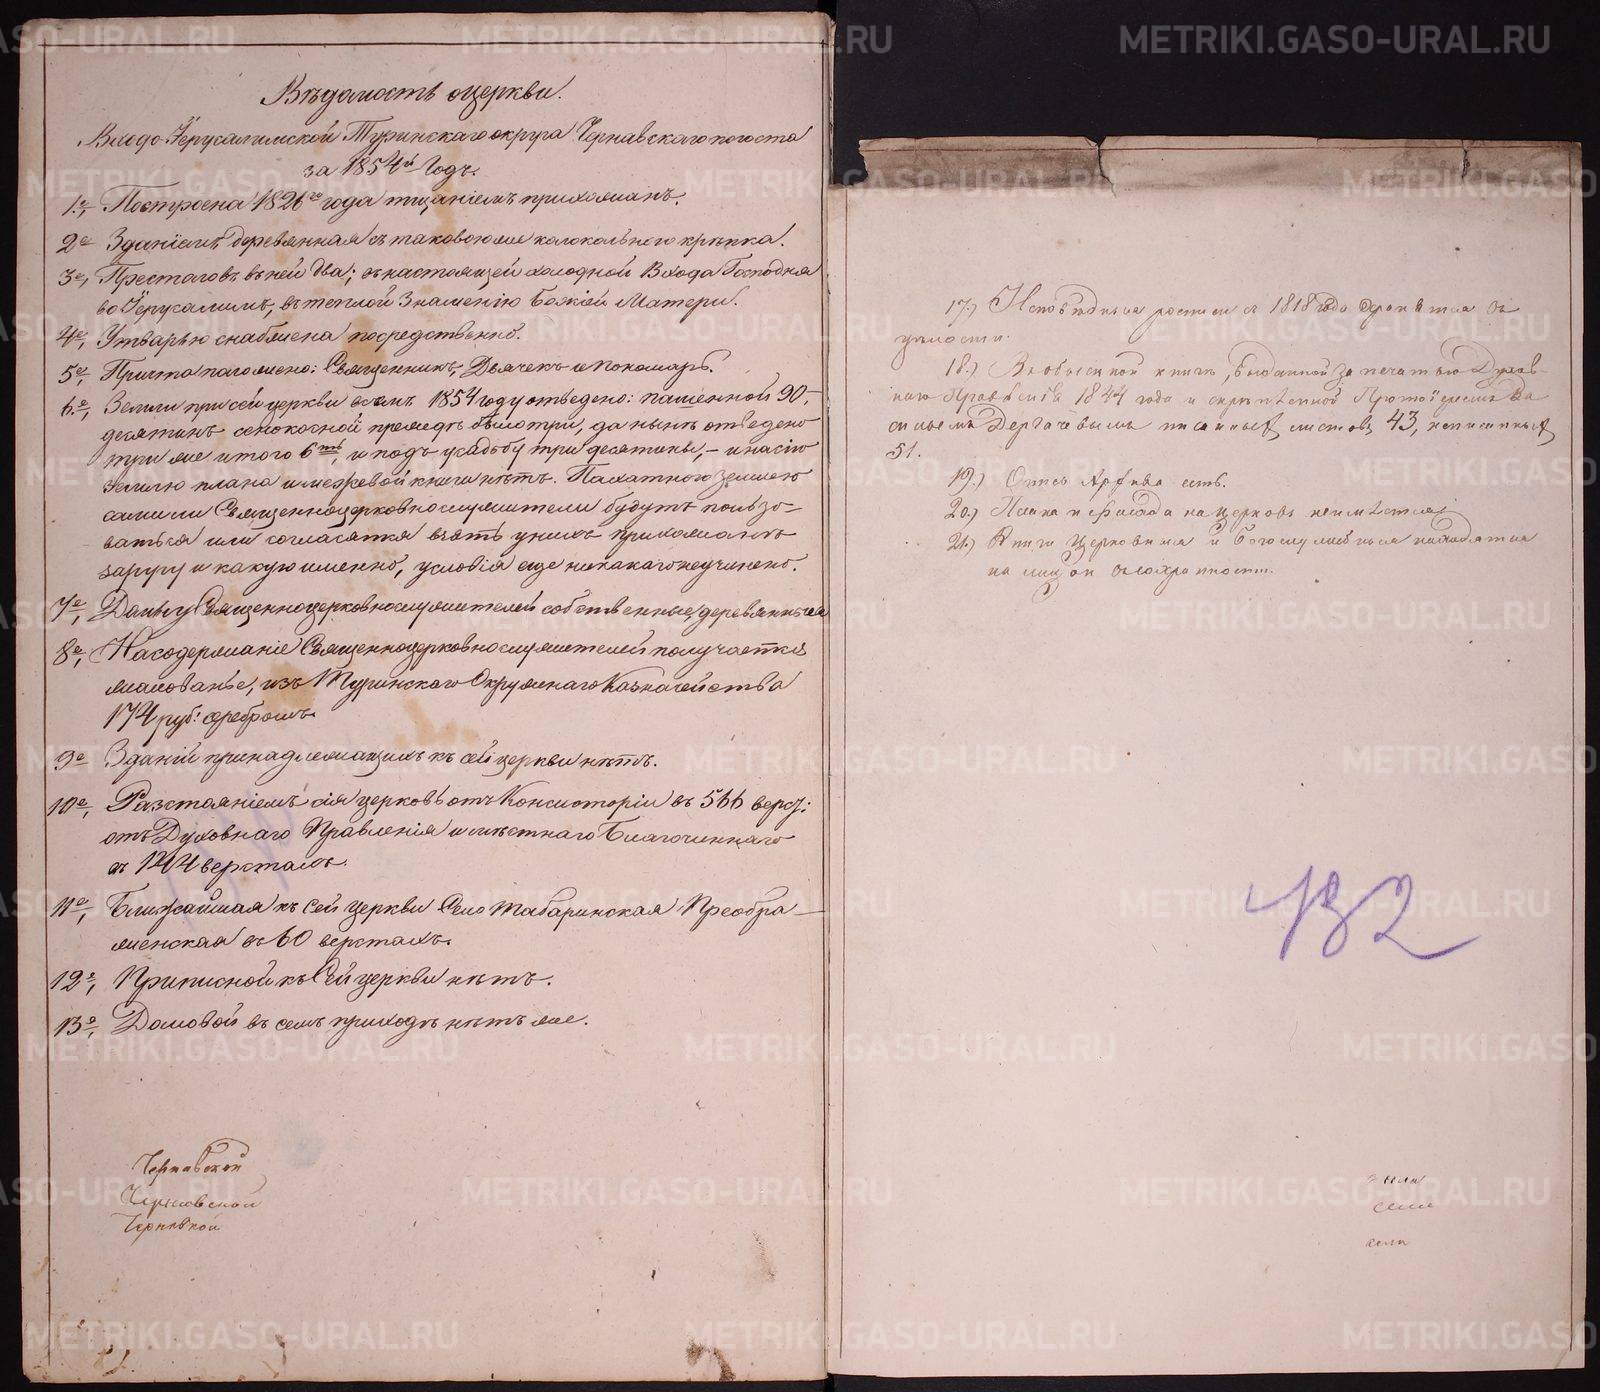 Вѣдомость о церкви.
Входо-Іерусалимской Туринскаго округа Чернавскаго погоста
за 1854й Годъ.
1е, Построена 1826го года тщаніемъ прихожанъ.
2е Зданіемъ деревянная съ таковою же колокольнею крѣпка.
3е, Престоловъ въ ней два; въ настоящей холодной Входа Господня
во Іерусалимъ, въ теплой Знаменію Божіей Матери.
4е, Утварью снабжена посредственно.
5е, Причта положено: Священникъ, Дьячекъ и Пономарь.
6е, Земли при сей церкви всѣмъ 1854 году отведено: пашенной 90,
десятинъ сенокосной прежде было три, да нынѣ отведено
три же итого 6ть, и подъ усадьбу три десятины, – и на сію
землю плана и межевой книги нѣтъ. Пахатною землею
сами ли Священноцерковнослужители будутъ пользо-
ваться или согласятся взять у нихъ прихожанъ
заругу и какую именно, условія еще никакого не учинено.
7е, Домы у Священноцерковнослужителей собственные, деревянныя
8е, На содержаніе Священноцерковнослужителей получается
жалованье, изъ Туринскаго Окружнаго Казначейства
174 руб: серебромъ.
9е Зданій принадлежащихъ къ сей церкви нѣтъ.
10е, Разстояніемъ сія церковь отъ Консисторіи въ 566 верс:
отъ Духовнаго Правленія и мѣстнаго Благочиннаго
въ 144 верстахъ.
11е, Ближайшая къ сей церкви Село Табаринская Преобра-
женская въ 60 верстахъ.
12е, Приписной къ Сей церкви нѣтъ.
13е, Домовой въ семъ приходѣ нѣтъ же.
Чернавской
Черновской
17.) Исповѣдныя росписи съ 1818 года хранятся въ
цѣлости.
18.) Въ обыскной книгѣ, выданной за печатью Духов-
наго Правленія 1844 года и скрѣпленной Протоіереемъ Ва
сильемъ Дергачевымъ писанныхъ листовъ 43, неписанныхъ
51.
19.) Опись Архива есть.
20.) Плана и Фасада на церковь неимѣется
21.) Книги Церковныя и Богослужебныя находятся
на лицо и въ сохранности.
132
села